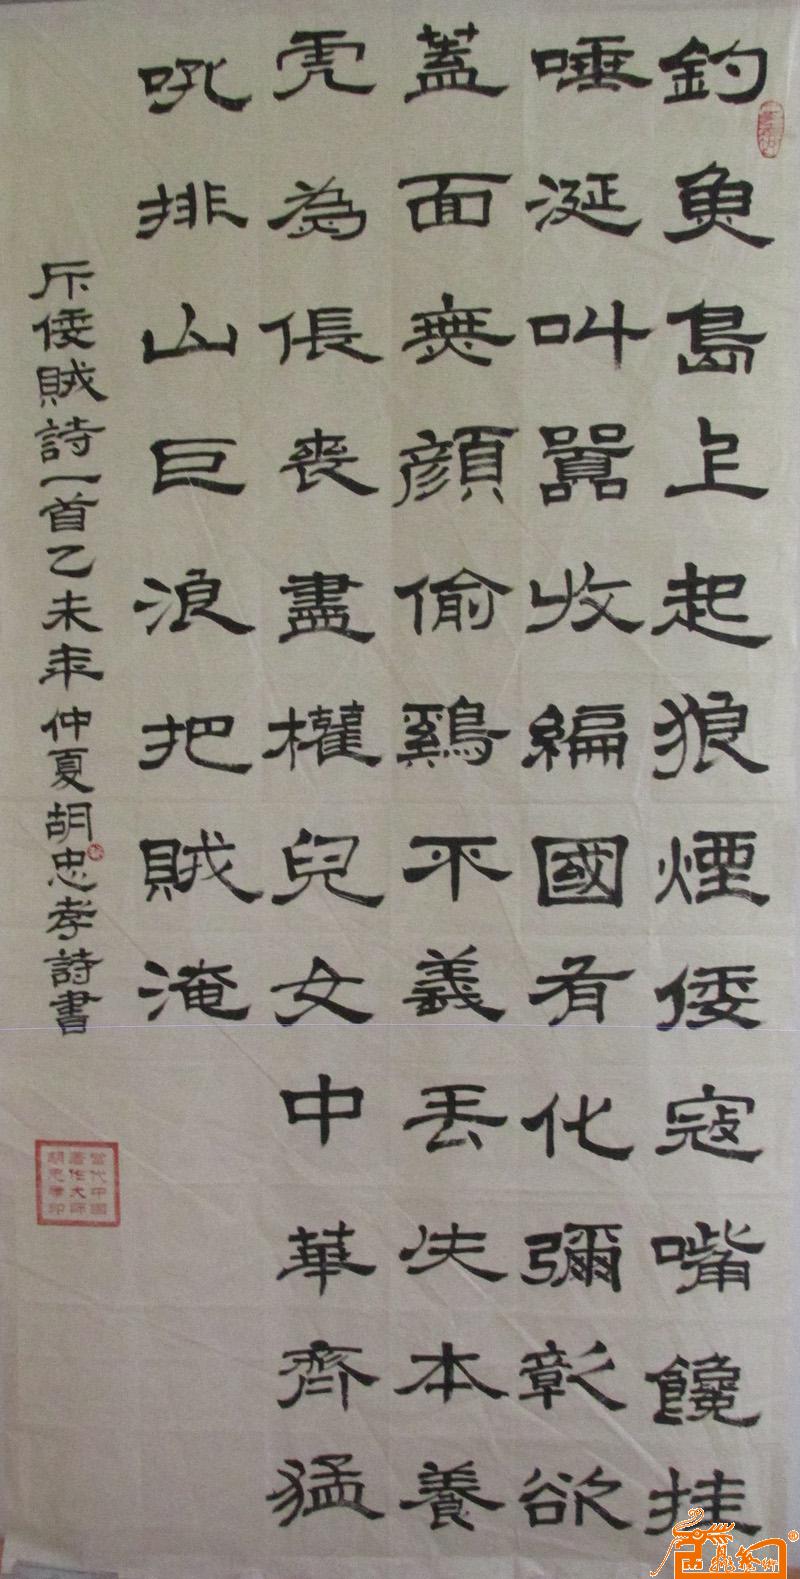 釣魚島上起狼煙倭寇嘴饞挂
唾涎叫囂收編國有化彌彰欲
蓋面無顏偷鷄不義丟失本養
虎為倀喪盡權兒女中華齊猛
吼排山巨浪把賊淹
斥倭賊詩一首乙未年仲夏胡忠孝詩書
當代中國
著作大師
胡忠孝印